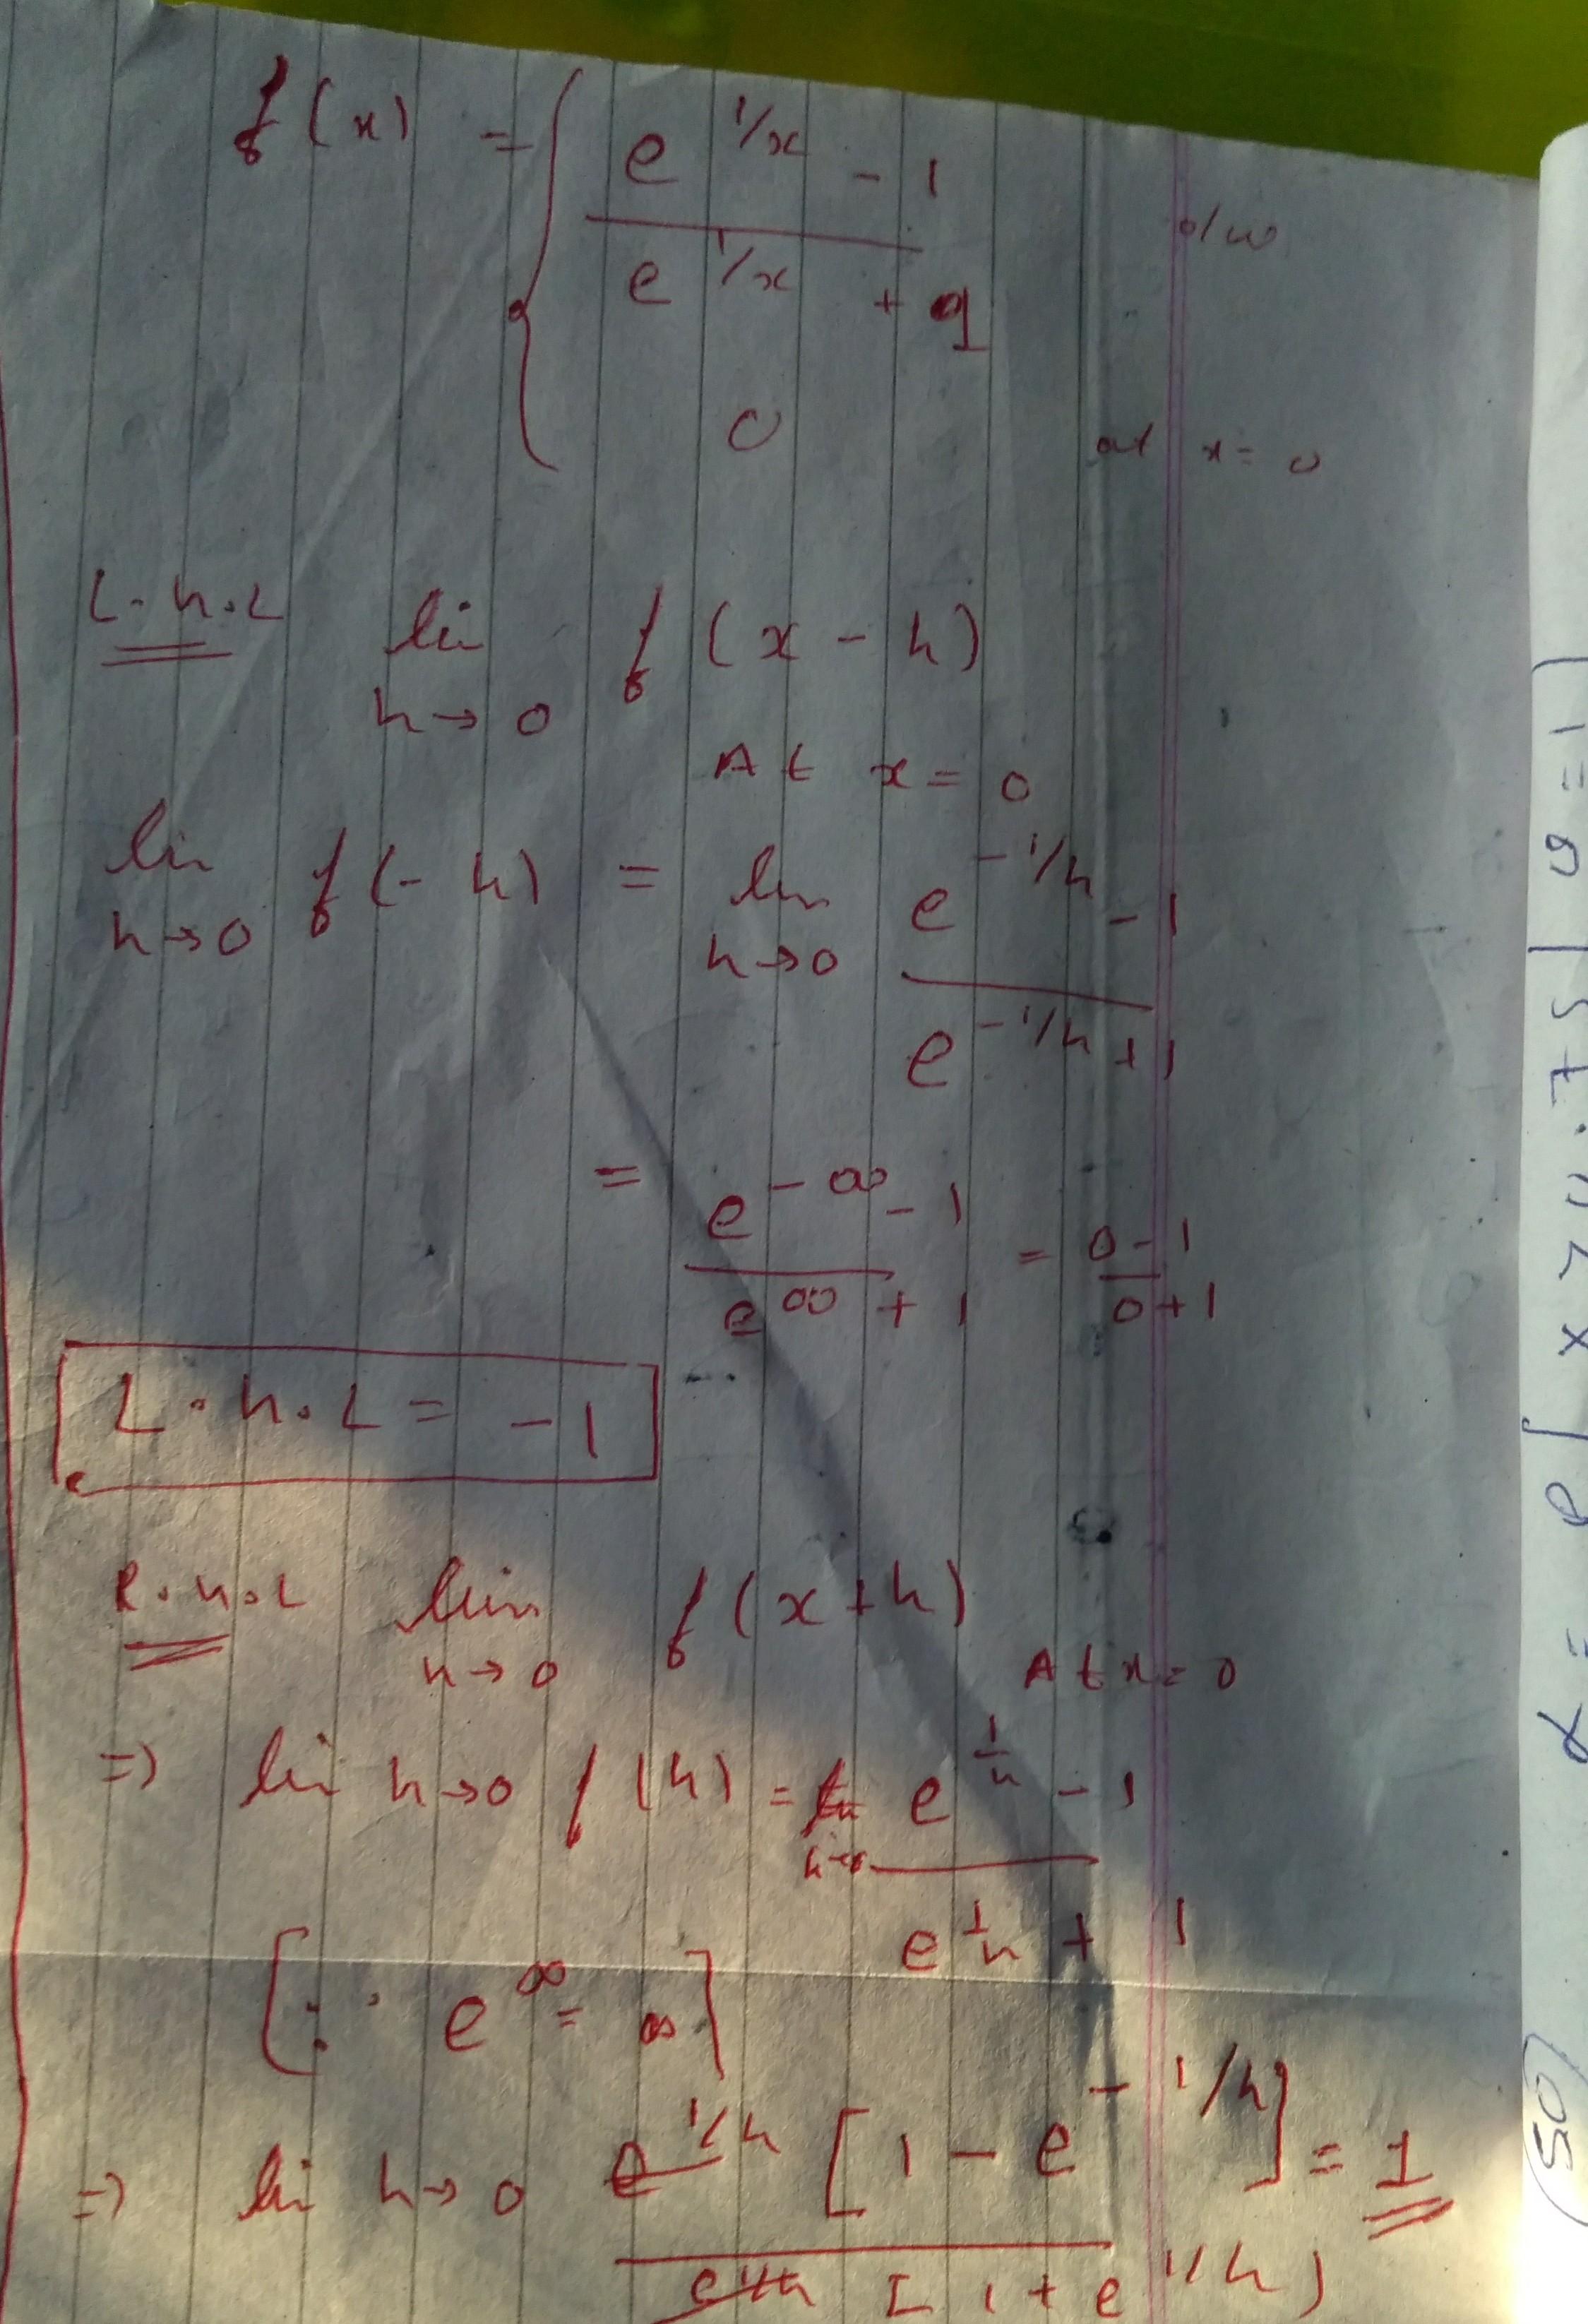 f(x) = { e^{1/x} - 1 / e^{1/x} + 1 o/w
0 at x = 0
L.H.L lim h→0 f(x - h)
At x = 0
lim h→0 f(-h) = lim h→0 e^{-1/h} - 1 / e^{-1/h} + 1
= e^{-∞} - 1 / e^{∞} + 1 = 0-1 / 0+1
L.H.L = -1
R.H.L lim h→0 f(x+h)
At x = 0
⇒ lim h→0 f(h) = lim h→0 e^{1/h} - 1 / e^{1/h} + 1
[∵ e^∞ = ∞]
⇒ lim h→0 e^{1/h} [1 - e^{-1/h}] / e^{1/h} [1 + e^{1/h}) = 1